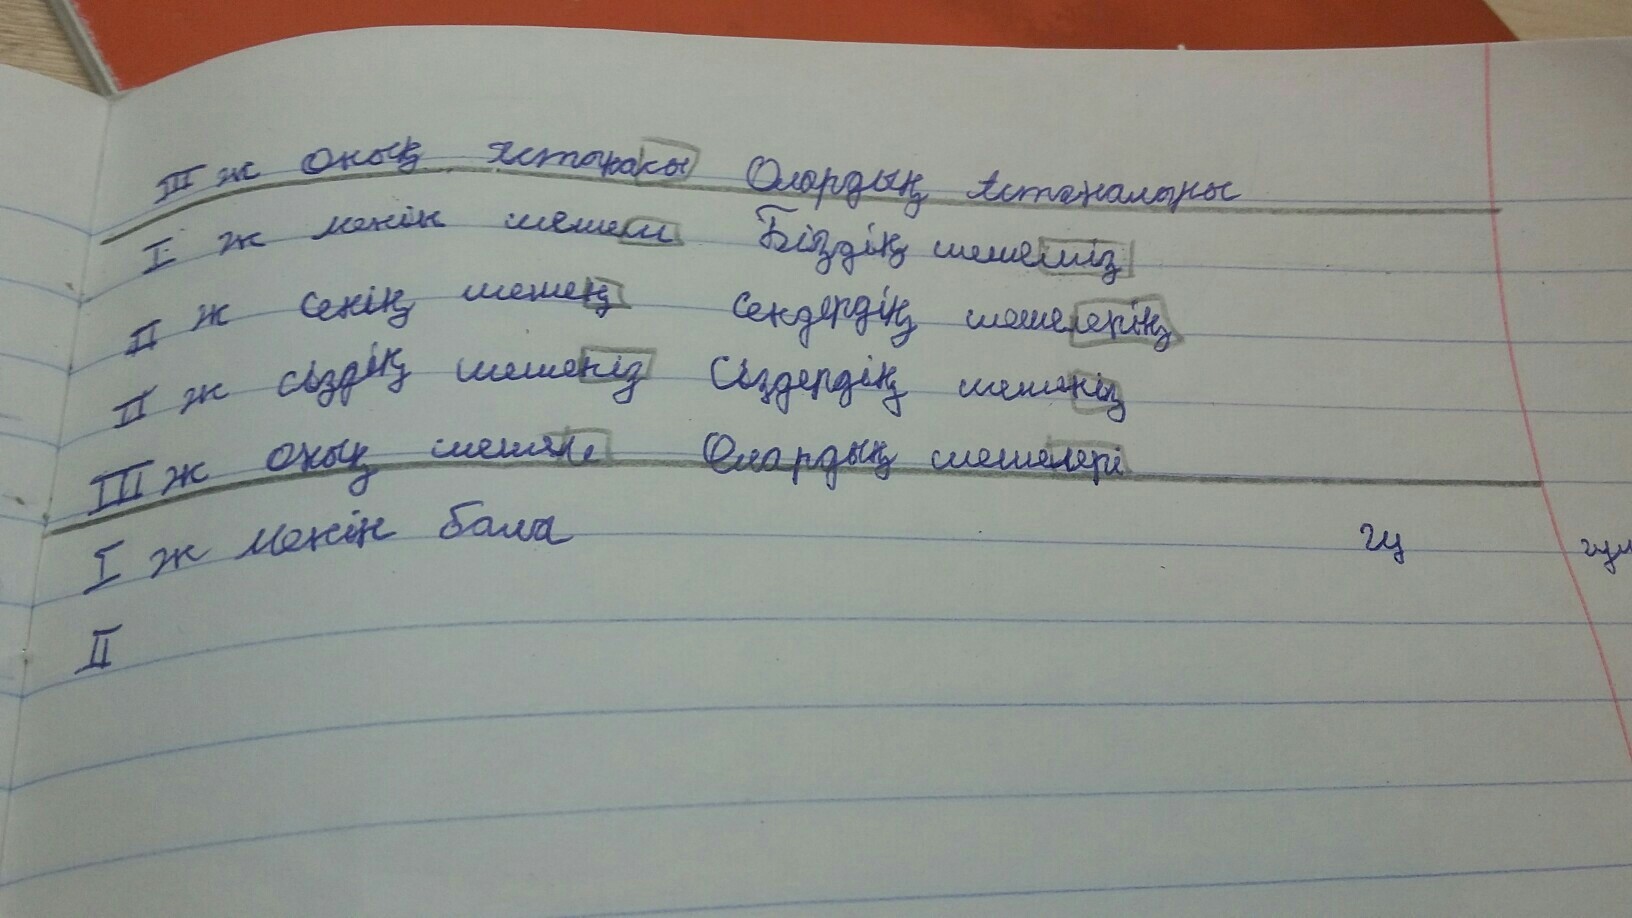 III ж оның Астанасы Олардың Астаналары
I ж менің шешем Біздің шешеміз
II ж сенің шешең сендердің шешелерің
II ж сіздің шешеңіз Сіздердің шешеңіз
III ж оның шешяне Олардың шешелері
I ж менің бала гү
II